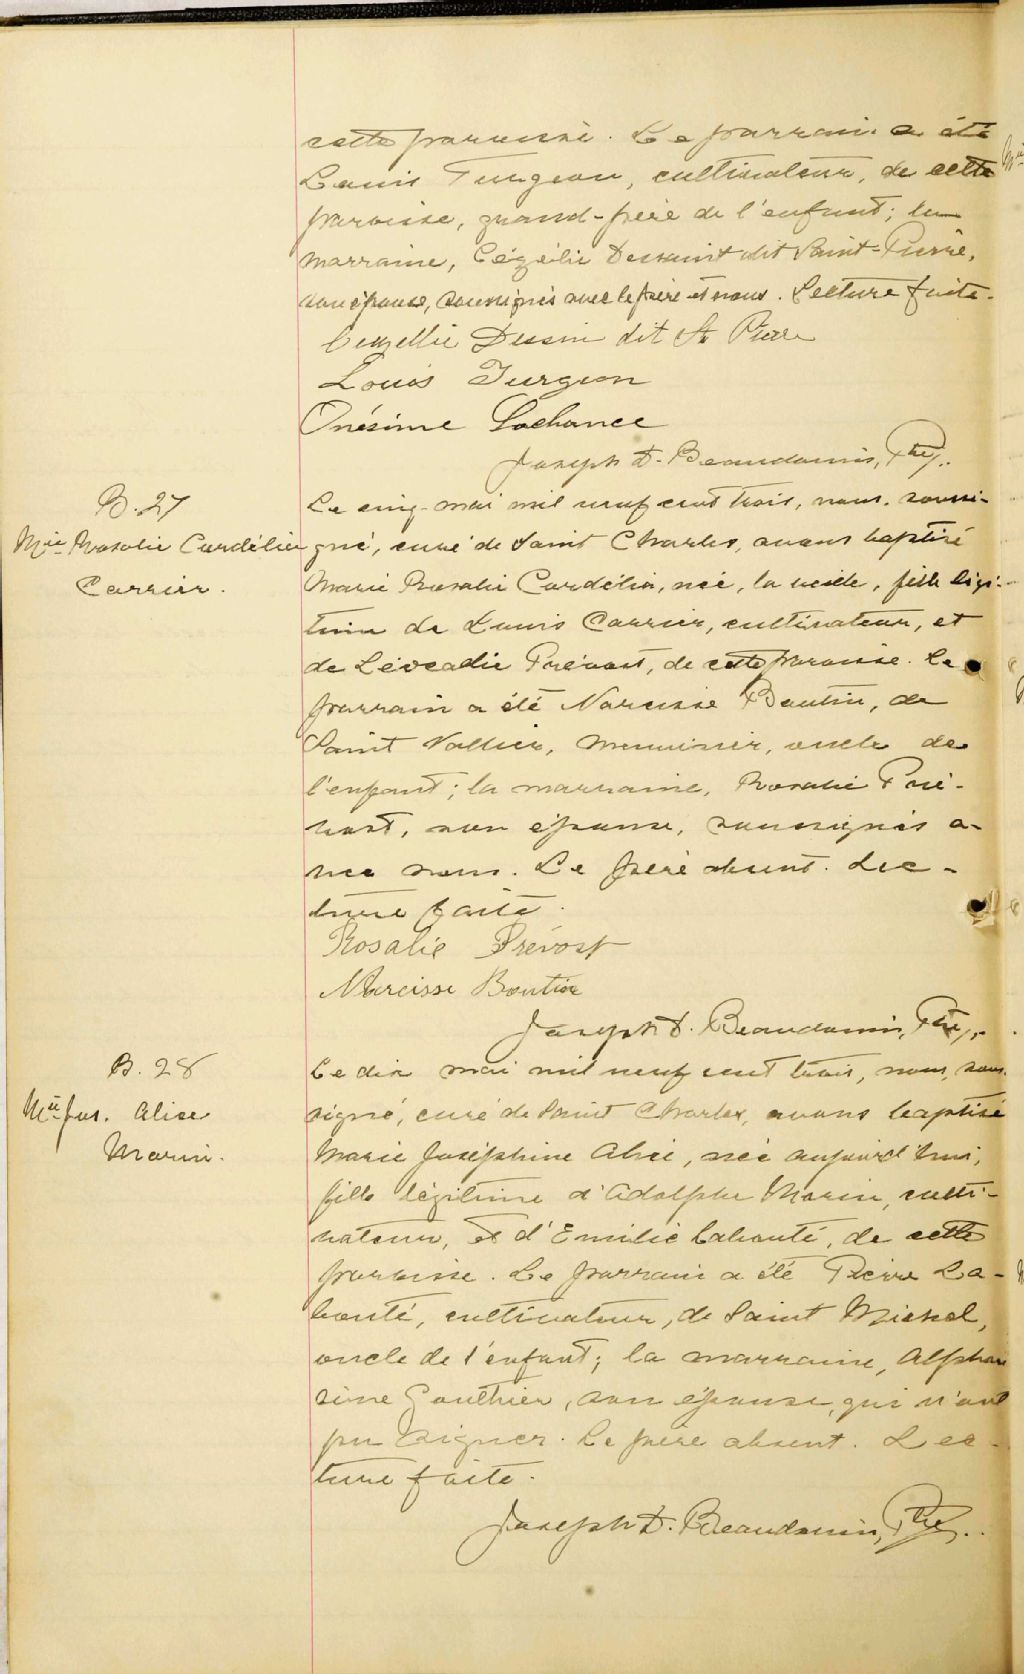 cette paroisse. Le parrain a été
Louis Turgeon, cultivateur, de cette
paroisse, grand-père de l'enfant; la
marraine, Cézélie Dessaint dit Saint-Pierre,
son épouse, soussignés avec le père et nous. Lecture faite.
Cezellie Dessin dit St Piere
Louis Turgeon
Onésime Lachance
Joseph D. Beaudouin, Ptre.
B. 27
Mie Rosalie Cordélia
Carrier.
Le cinq mai mil neuf cent trois, nous, soussi-
gné, curé de Saint Charles, avons baptisé
Marie Rosalie Cordélia, née, la veille, fille légi-
time de Louis Carrier, cultivateur, et
de Léocadie Prévost, de cette paroisse. Le
parrain a été Narcisse Boutin, de
Saint Vallier, menuisier, oncle de
l'enfant; la marraine, Rosalie Pré-
vost, son épouse, soussignés a-
vec nous. Le père absent. Lec-
ture faite.
Rosalie Prévost
Narcisse Boutin
Joseph D. Beaudouin, Ptre.
B. 28
Mie Jos. Alice
Morin.
Le dix mai mil neuf cent trois, nous, sous-
signé, curé de Saint Charles, avons baptisé
Marie Joséphine Alice, née aujourd'hui,
fille légitime d'Adolphe Morin, culti-
vateur, et d'Emilie Labonté, de cette
paroisse. Le parrain a été Pierre La-
bonté, cultivateur, de Saint Michel,
oncle de l'enfant; la marraine, Alphon
sine Gouthier, son épouse, qui n'ont
pu signer. Le père absent. Lec-
ture faite.
Joseph D. Beaudouin, Ptre.